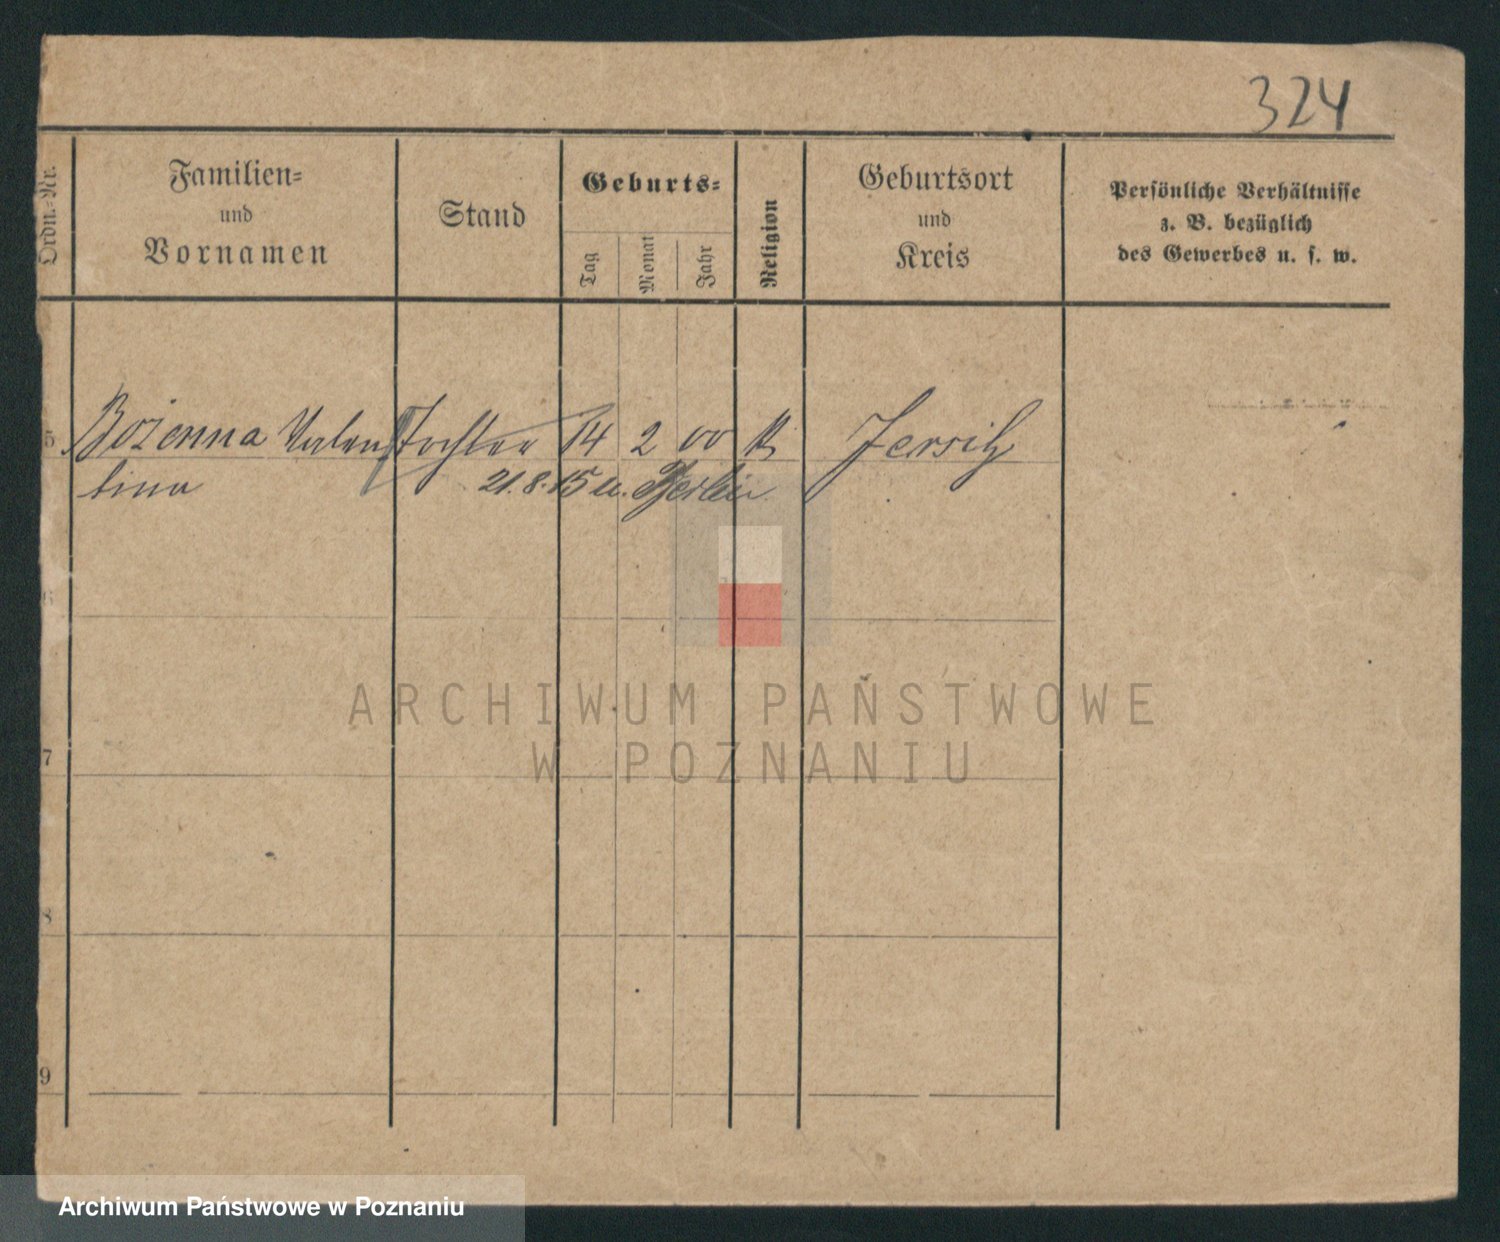 324
Ordn.-Nr.
Familien-
und
Vornamen
Stand
Geburts-
Tag
Monat
Jahr
Religion
Geburtsort
und
Kreis
Persönliche Verhältnisse
z. B. bezüglich
des Gewerbes u. s. w.
5 Bożenna Valen Tochter 14 2 00 K Jersitz
tina 21.8.15 u. Berlin
6
7
8
9
ARCHIWUM PAŃSTWOWE
W POZNANIU
Archiwum Państwowe w Poznaniu